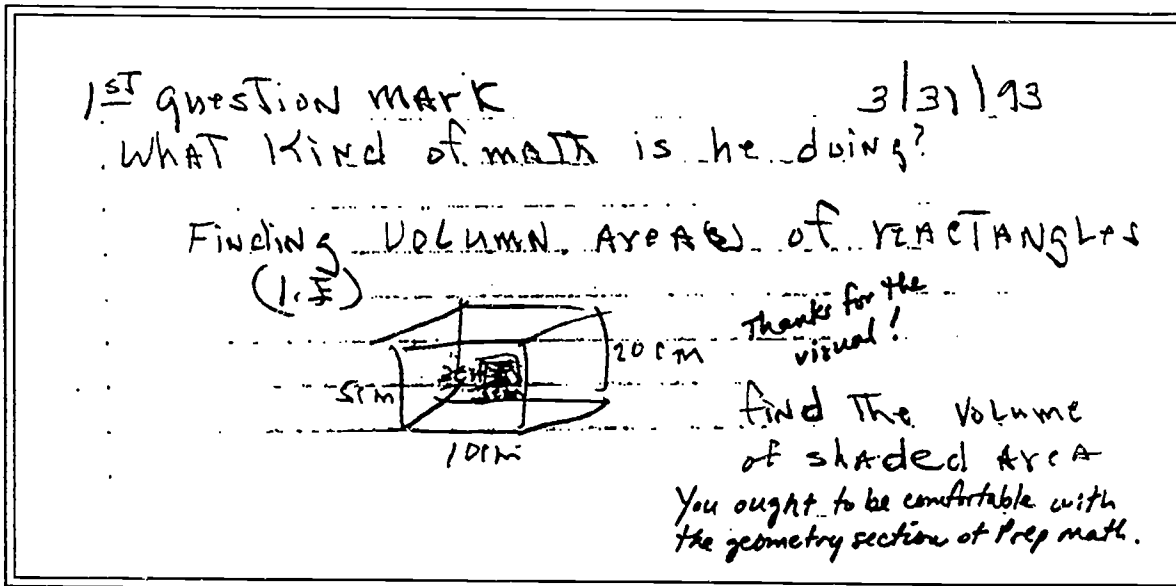 1ST question mark 3/31/93
What Kind of math is he doing?
Finding Volumn, Areas of reactangles
(I.E)
Thanks for the
visual!
20cm
5cm
10cm
find The volume
of shaded Area
You ought to be comfortable with
the geometry section of Prep math.